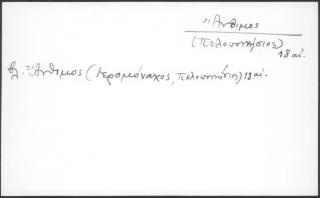 Ἄνθιμος
(Πελοποννήσιος)
18 αἰ.
Βλ. Ἄνθιμος (Ἱερομόναχος, Πελοποννήσιος) 18 αἰ.